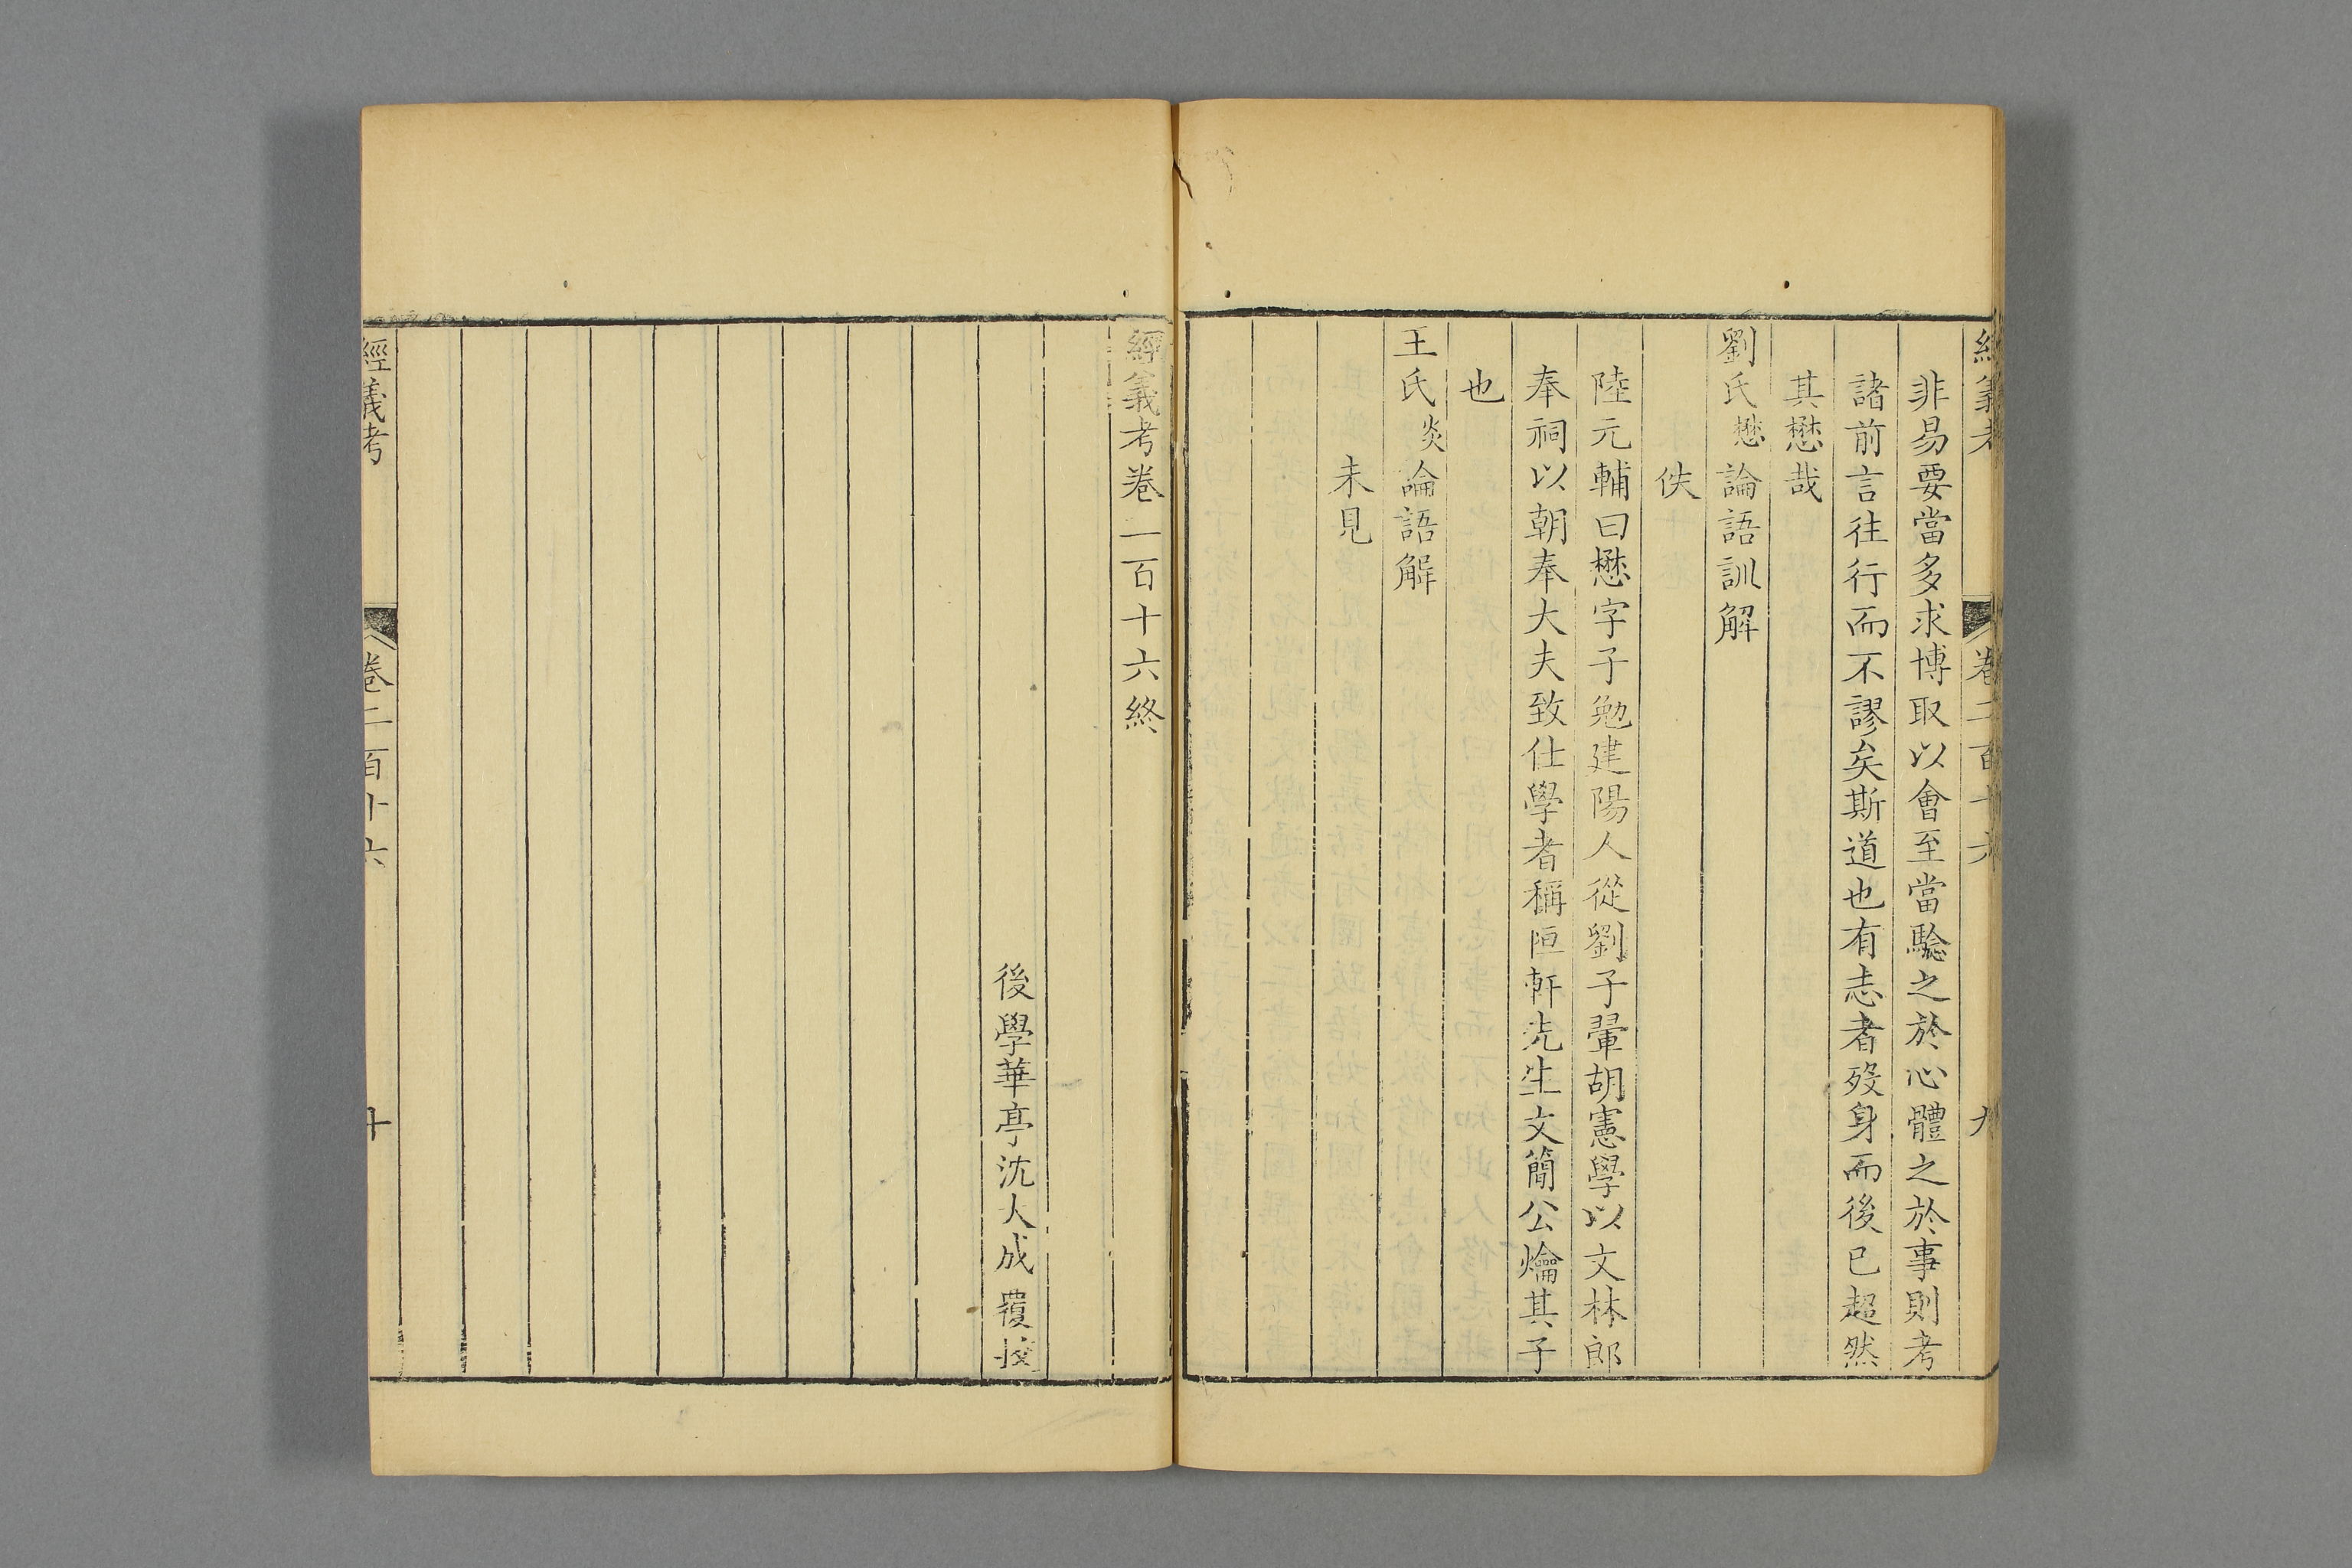 經義考 卷二百十六 九
非易要當多求博取以會至當驗之於心體之於事則考
諸前言往行而不謬矣斯道也有志者歿身而後已超然
其懋哉
劉氏懋論語訓解
佚
陸元輔曰懋字子勉建陽人從劉子翬胡憲學以文林郎
奉祠以朝奉大夫致仕學者稱恒軒先生文簡公爚其子
也
王氏炎論語解
未見
經義考卷二百十六終
後學華亭沈大成覆挍
經義考 卷二百十六 十